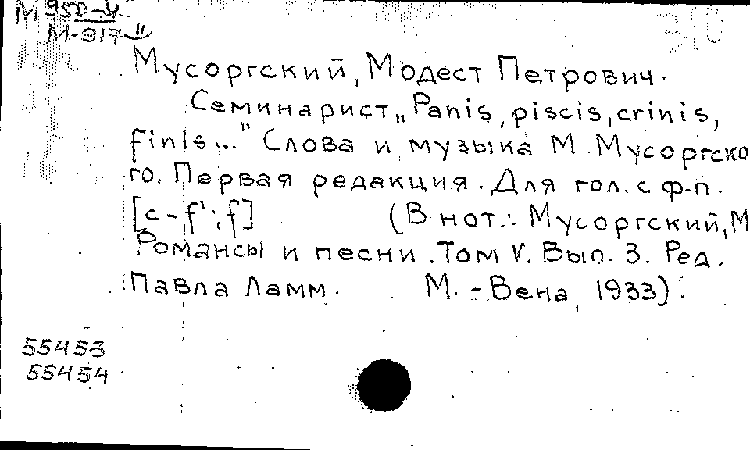 М 950-У
М-917-II
Мусоргский, Модест Петрович.
Семинарист „Panis, piscis, crinis,
finis..." Слова и музыка М. Мусоргско
го. Первая редакция. Для гол. с ф-п.
[c-f'; f] (В нот.: Мусоргский, М
Романсы и песни. Том V. Вып. 3. Ред.
Павла Ламм. М. - Вена, 1933).
55453
55454